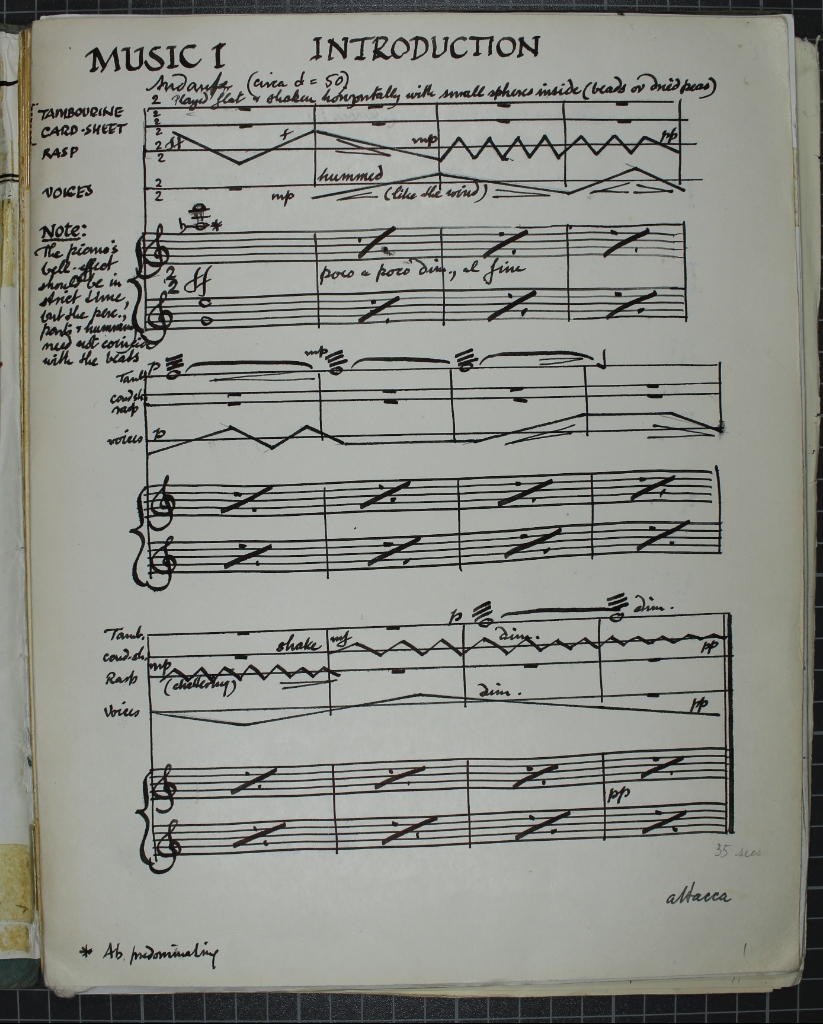 MUSIC 1 INTRODUCTION
Andante (circa d = 50)
Played flat & shaken horizontally with small spheres inside (beads or dried peas)
TAMBOURINE
CARD-SHEET
RASP
ff f mp pp
hummed
VOICES mp (like the wind)
Note:
The piano's
bell-effect
should be in
strict time,
but the perc.,
parts & humming
need not coincide
with the beats
*
2
2 ff
poco a poco dim., al fine
Tamb. p mp
card-sh.
rasp
voices p
p dim.
Tamb.
card-sh. shake mf dim. pp
Rasp mp
(chattering)
Voices dim. pp
pp
35 secs
attacca
* Ab predominating
1